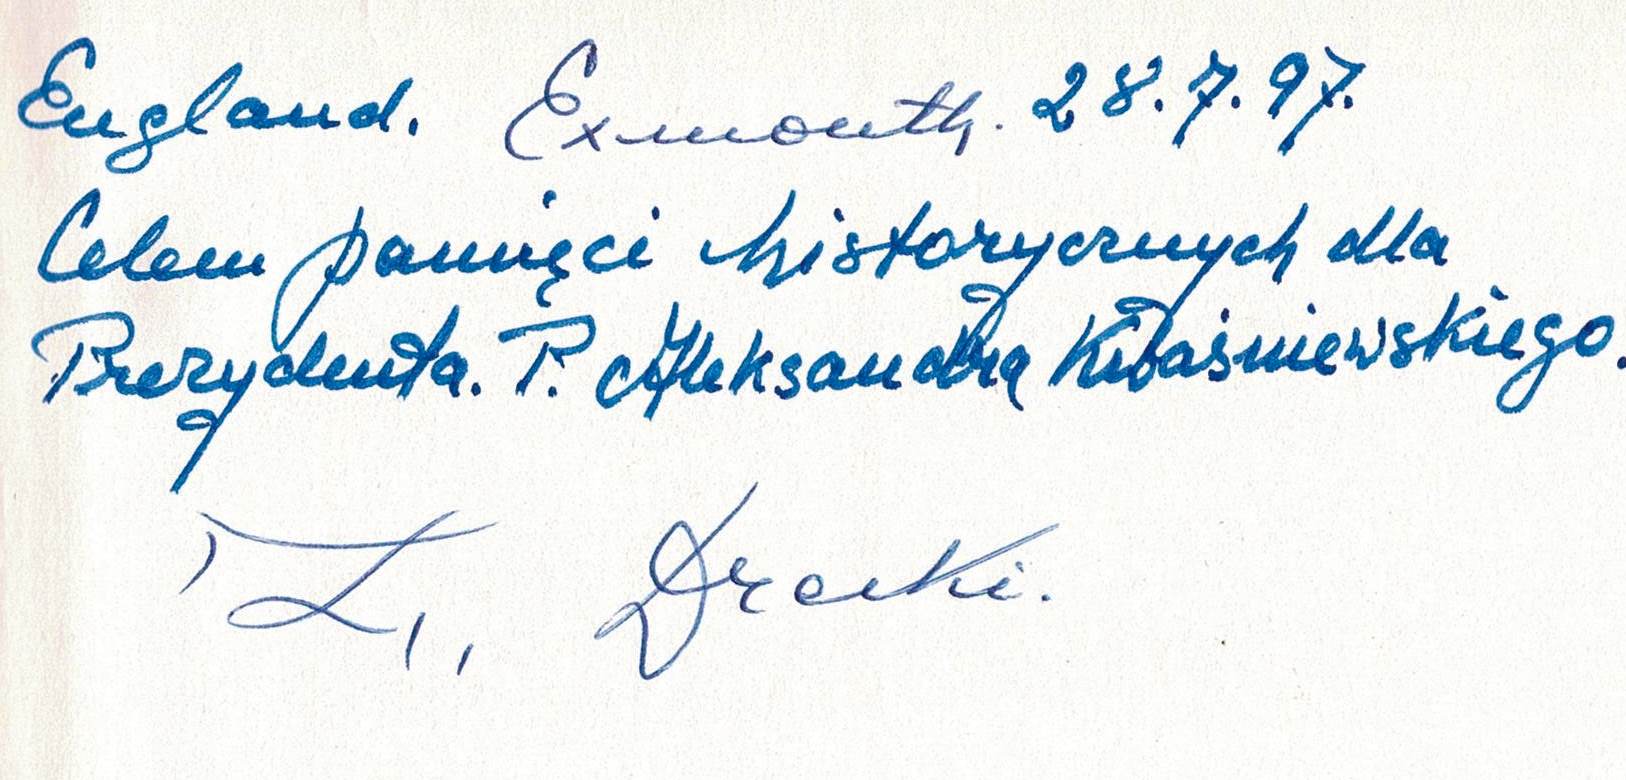 England. Exmouth. 28.7.97.
Celem pamięci historycznych dla
Prezydenta. P. Aleksandra Kwaśniewskiego.